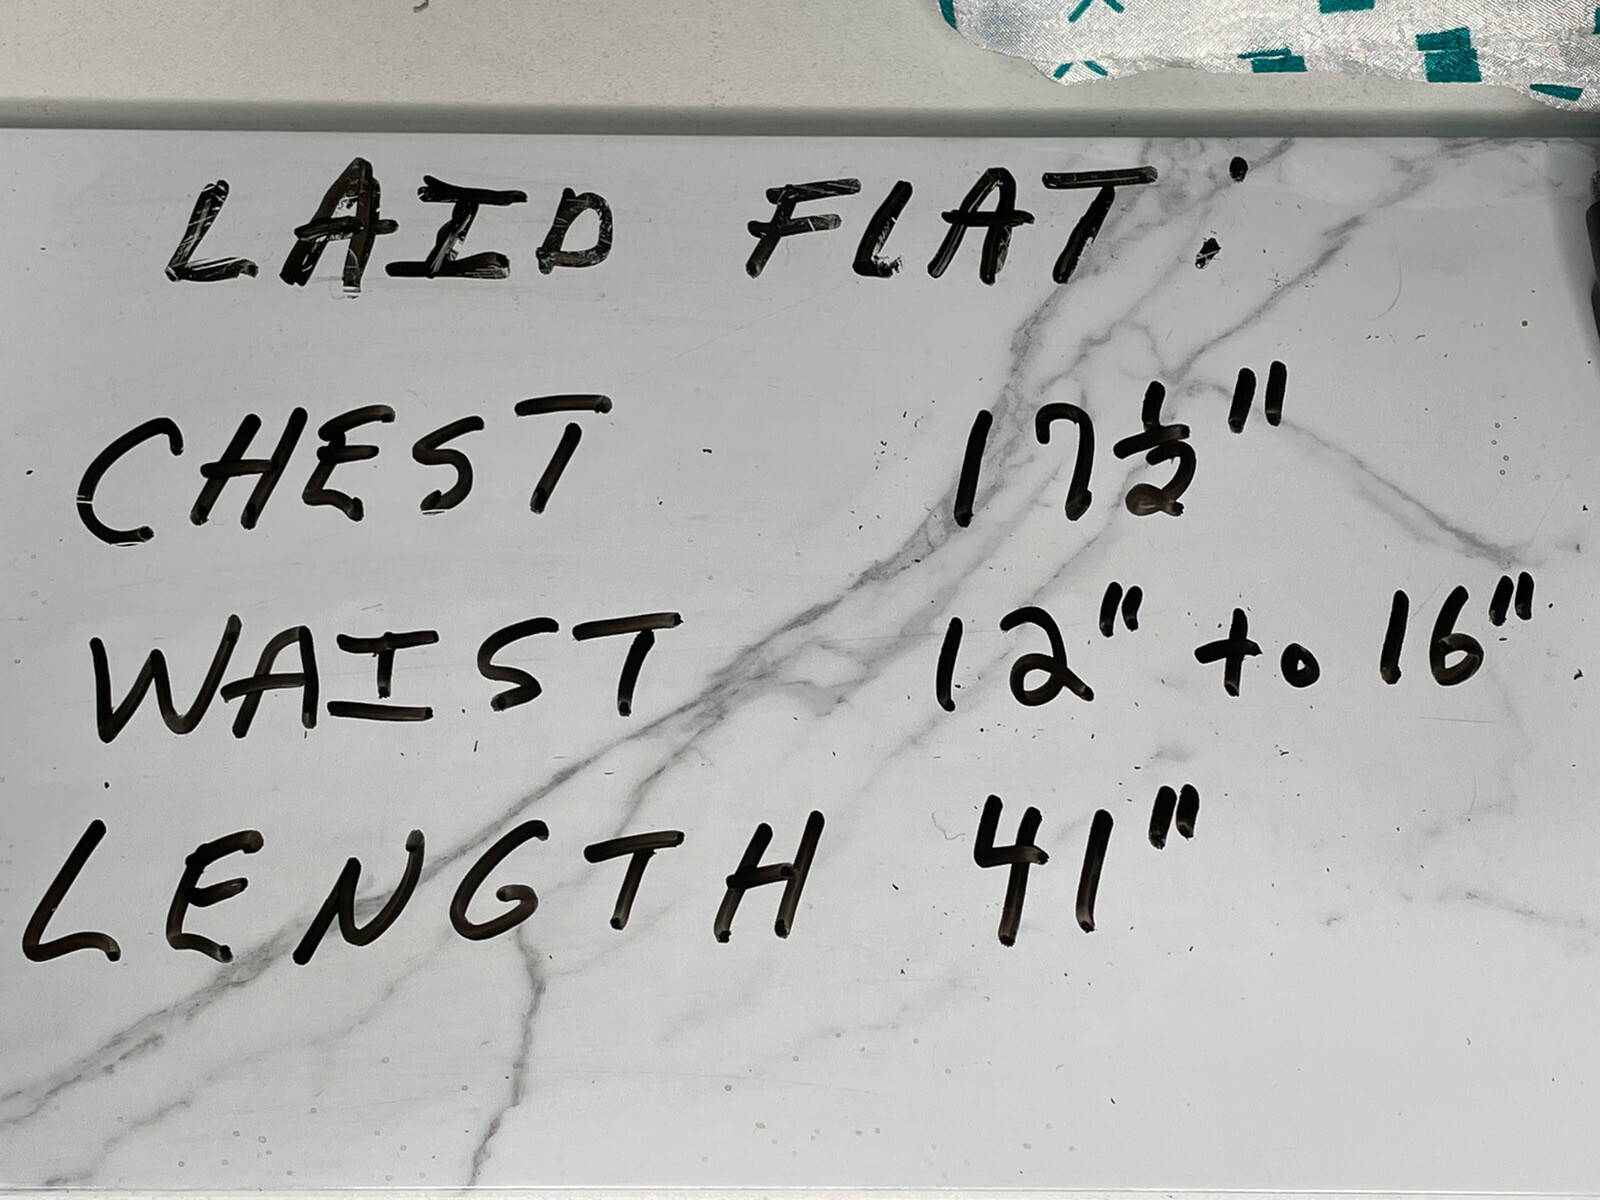 LAID FLAT:
CHEST 17½"
WAIST 12" to 16"
LENGTH 41"